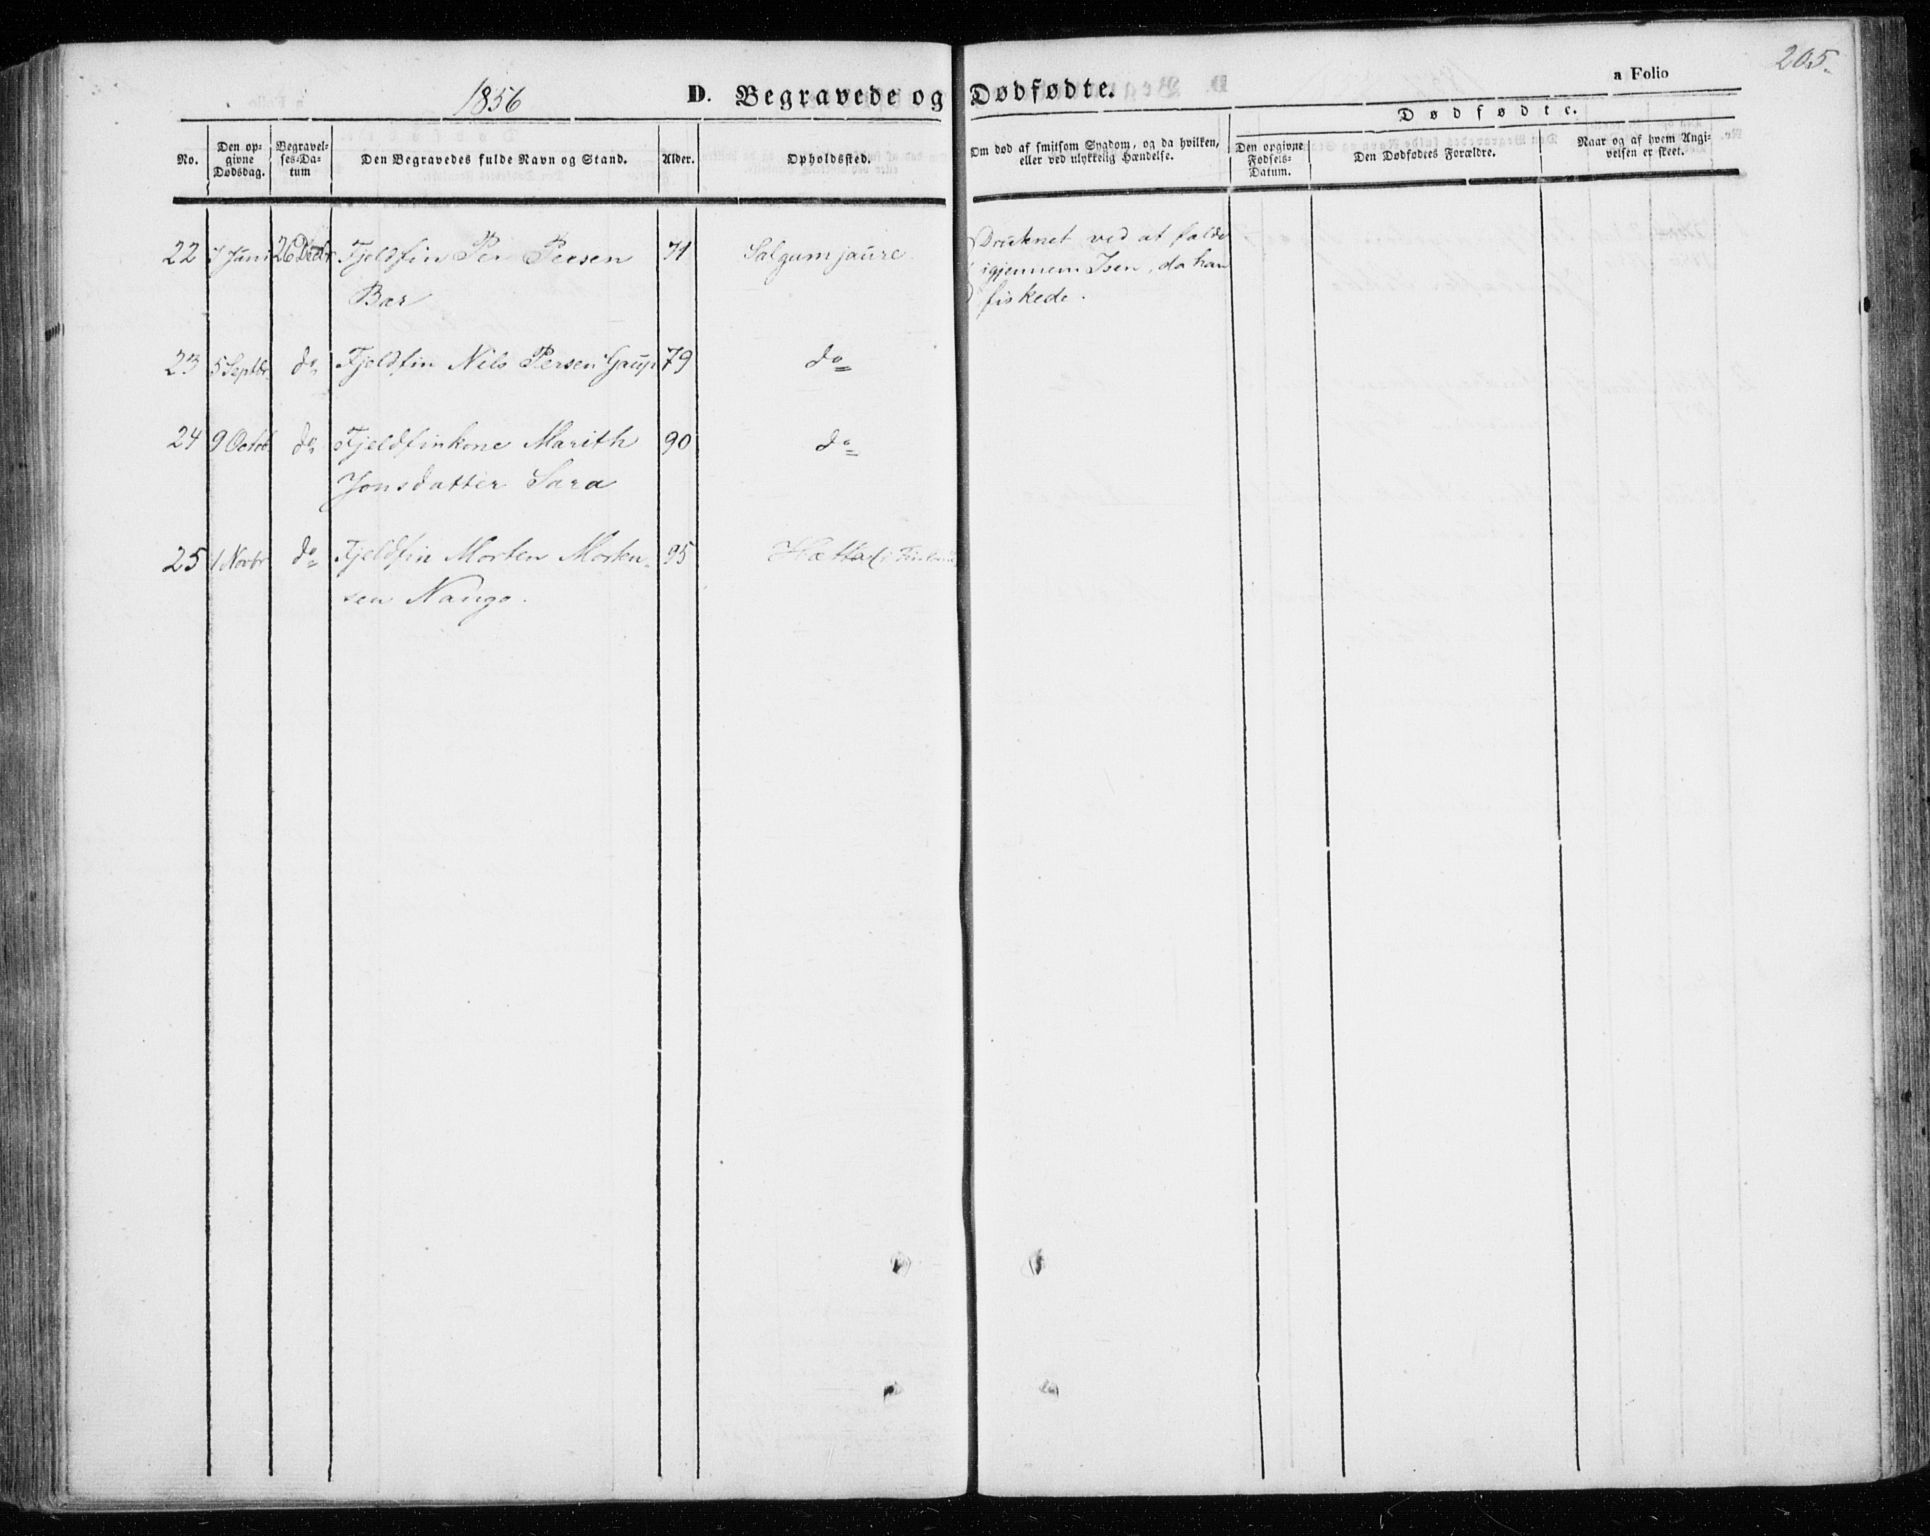 205.
1856 D. Begravede og Dødfødte. a Folio
Dødfødte.
No. Den opgivne Dødsdag. Begravelses-Datum Den Begravedes fulde Navn og Stand. Alder. Opholdssted. Om død af smitsom Sygdom, og da hvilken, eller ved ulykkelig Hændelse. Den opgivne Fødsels-Datum. Den Dødfødtes Forældre. Naar og af hvem Angivelsen er skeet.
22 7 Juni 26 Decbr Fjeldfin Per Persen 71 Salgumjaure. Druknet ved at falde
Bær igjennem Isen, da han
fiskede.
23 5 Septbr. do Fjeldfin Nils Persen Gaup 79 do
24 9 Octob do Fjeldfinkone Marith 90 do
Jonsdatter Sara
25 1 Novbr do Fjeldfin Morten Morten- 95 Hætta i
sen Nango.